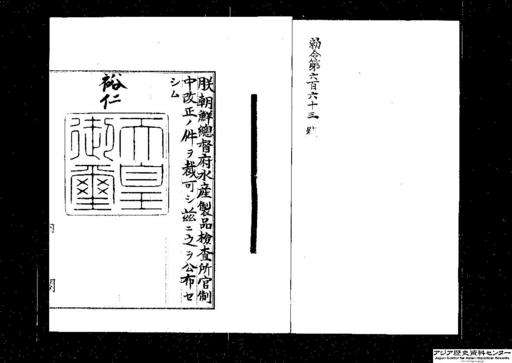 勅令第六百六十三號
朕朝鮮總督府水産製品檢査所官制
中改正ノ件ヲ裁可シ玆ニ之ヲ公布セ
シム
裕仁
天皇
御璽
内
閣
アジア歴史資料センター
Japan Center for Asian Historical Records